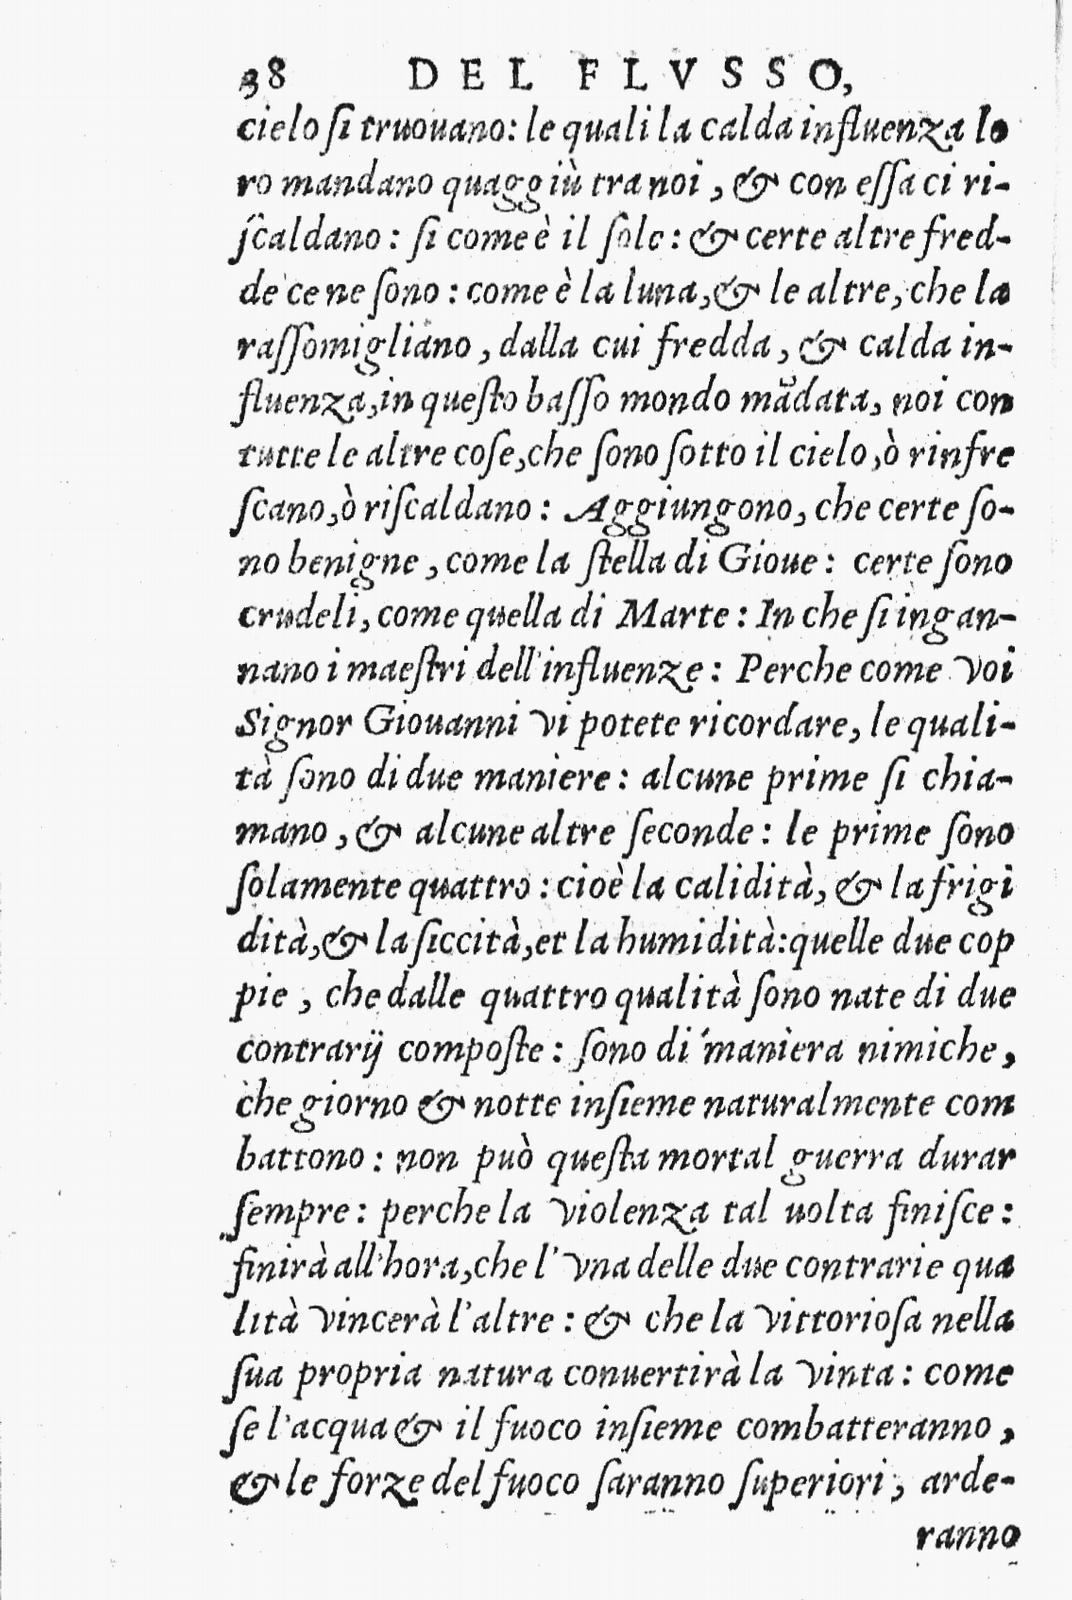 38 DEL FLVSSO,
cielo ſi truouano: le quali la calda influenza lo
ro mandano quaggiù tra noi, & con eſſa ci ri-
ſcaldano: ſi come è il ſole: & certe altre fred-
de ce ne ſono: come è la luna, & le altre, che la
raſſomigliano, dalla cui fredda, & calda in-
fluenza, in queſto baſſo mondo mãdata, noi con
tutte le altre coſe, che ſono ſotto il cielo, ò rinfre
ſcano, ò riſcaldano: Aggiungono, che certe ſo-
no benigne, come la ſtella di Gioue: certe ſono
crudeli, come quella di Marte: In che ſi ingan-
nano i maeſtri dell'influenze: Perche come voi
Signor Giouanni vi potete ricordare, le quali-
tà ſono di due maniere: alcune prime ſi chia-
mano, & alcune altre ſeconde: le prime ſono
ſolamente quattro: cioè la calidità, & la frigi
dità, & la ſiccità, et la humidità: quelle due cop
pie, che dalle quattro qualità ſono nate di due
contrarij compoſte: ſono di maniera nimiche,
che giorno & notte inſieme naturalmente com
battono: non può queſta mortal guerra durar
ſempre: perche la violenza tal uolta finiſce:
finirà all'hora, che l'vna delle due contrarie qua
lità vincerà l'altre: & che la vittorioſa nella
ſua propria natura conuertirà la vinta: come
ſe l'acqua & il fuoco inſieme combatteranno,
& le forze del fuoco ſaranno ſuperiori, arde-
ranno